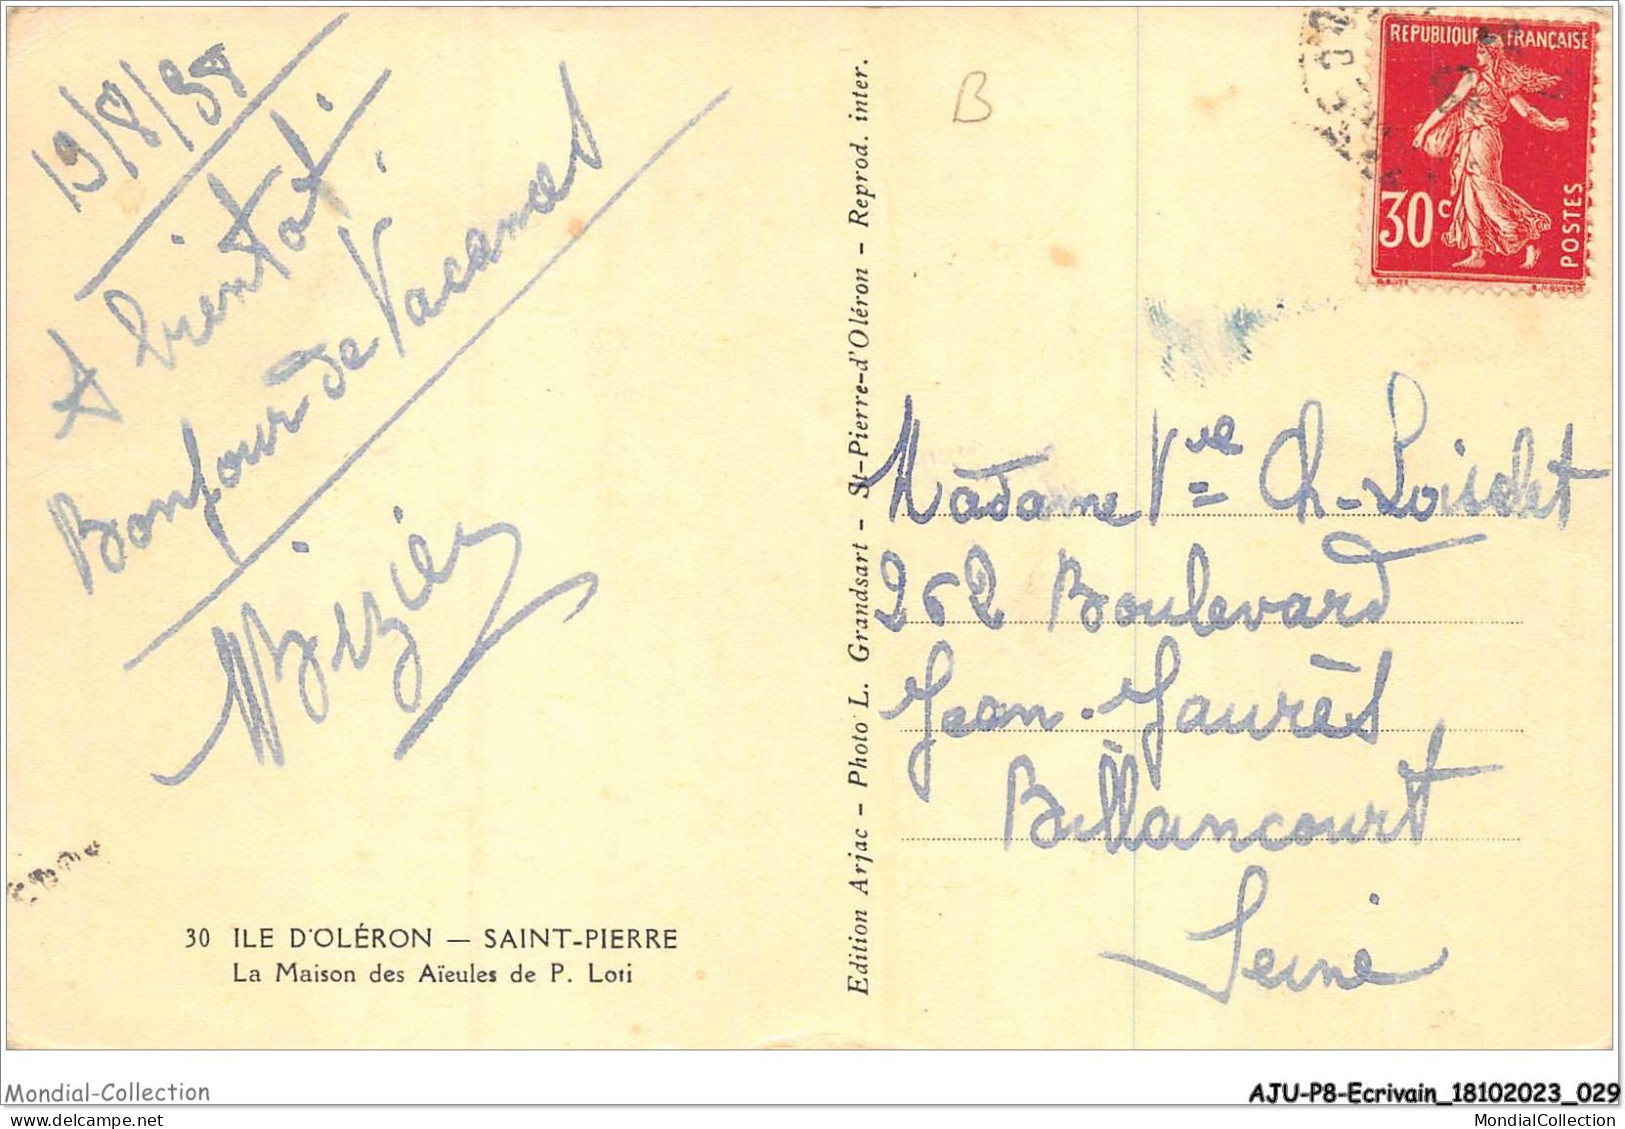 19/8/38
A bientôt.
Bonjour de Vacances
Bizier
30 ILE D'OLÉRON — SAINT-PIERRE
La Maison des Aïeules de P. Loti
Edition Arjac – Photo L. Grandsart – St-Pierre-d'Oléron – Reprod. inter.
B
REPUBLIQUE FRANÇAISE
30c
POSTES
Madame Vve Ch. Loiselet
262 Boulevard
Jean-Jaurès
Billancourt
Seine
Mondial-Collection
AJU-P8-Ecrivain_18102023_029
MondialCollection